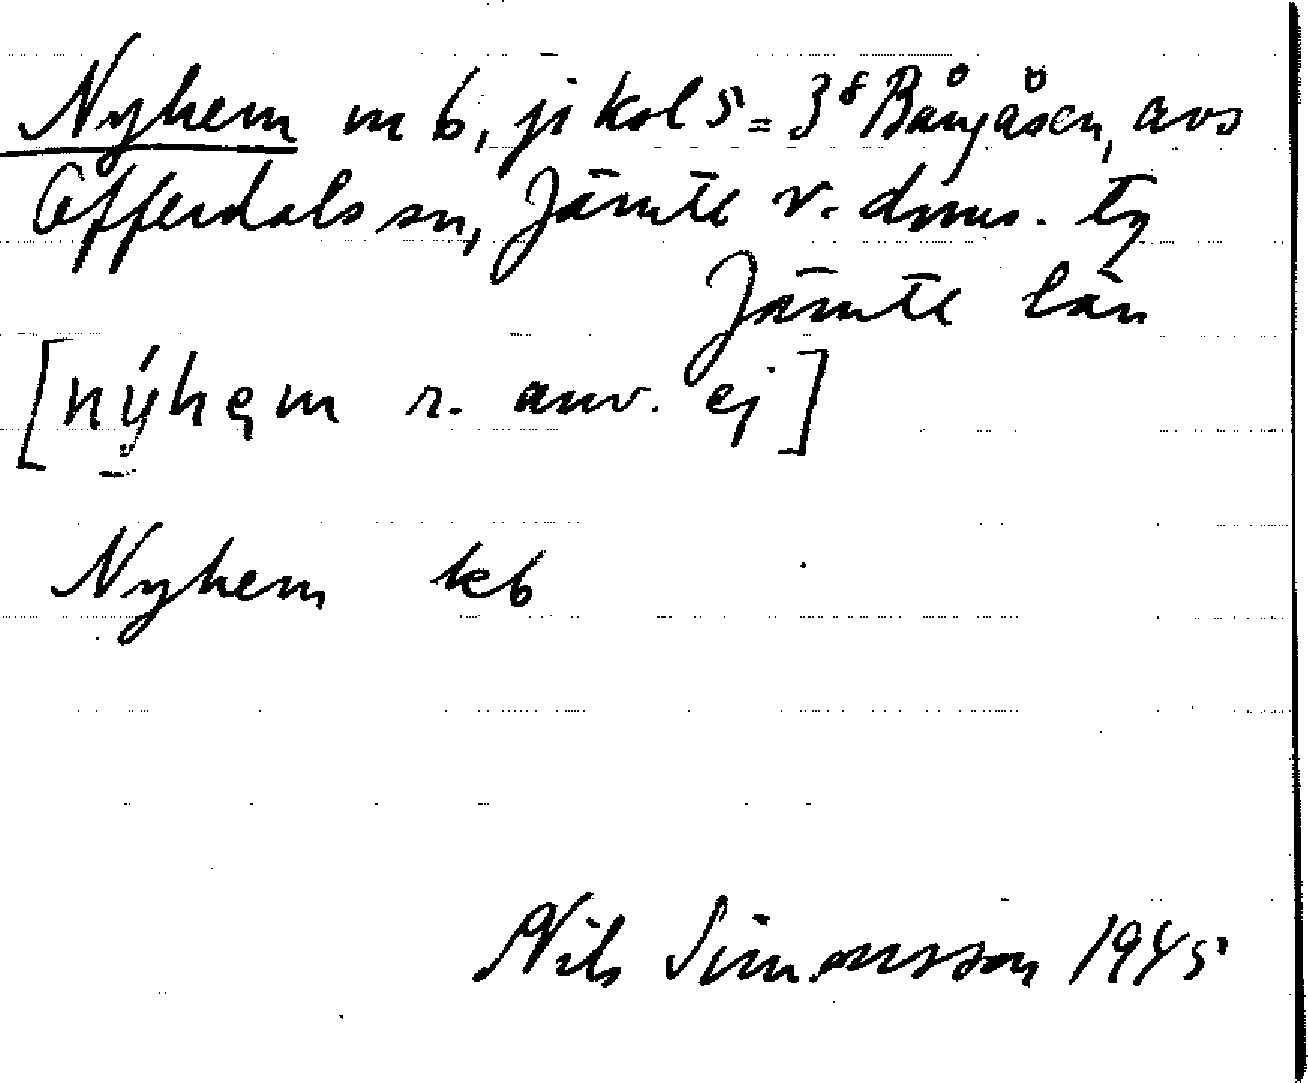 Nyhem m 6, ji kol 5 = 3⁸ Bångåsen, avs
Offerdals sn, Jämte v. dms. tg
Jämte län
[nýhęm r. anv. ej]
Nyhem keb
Nils Simonsson 1945